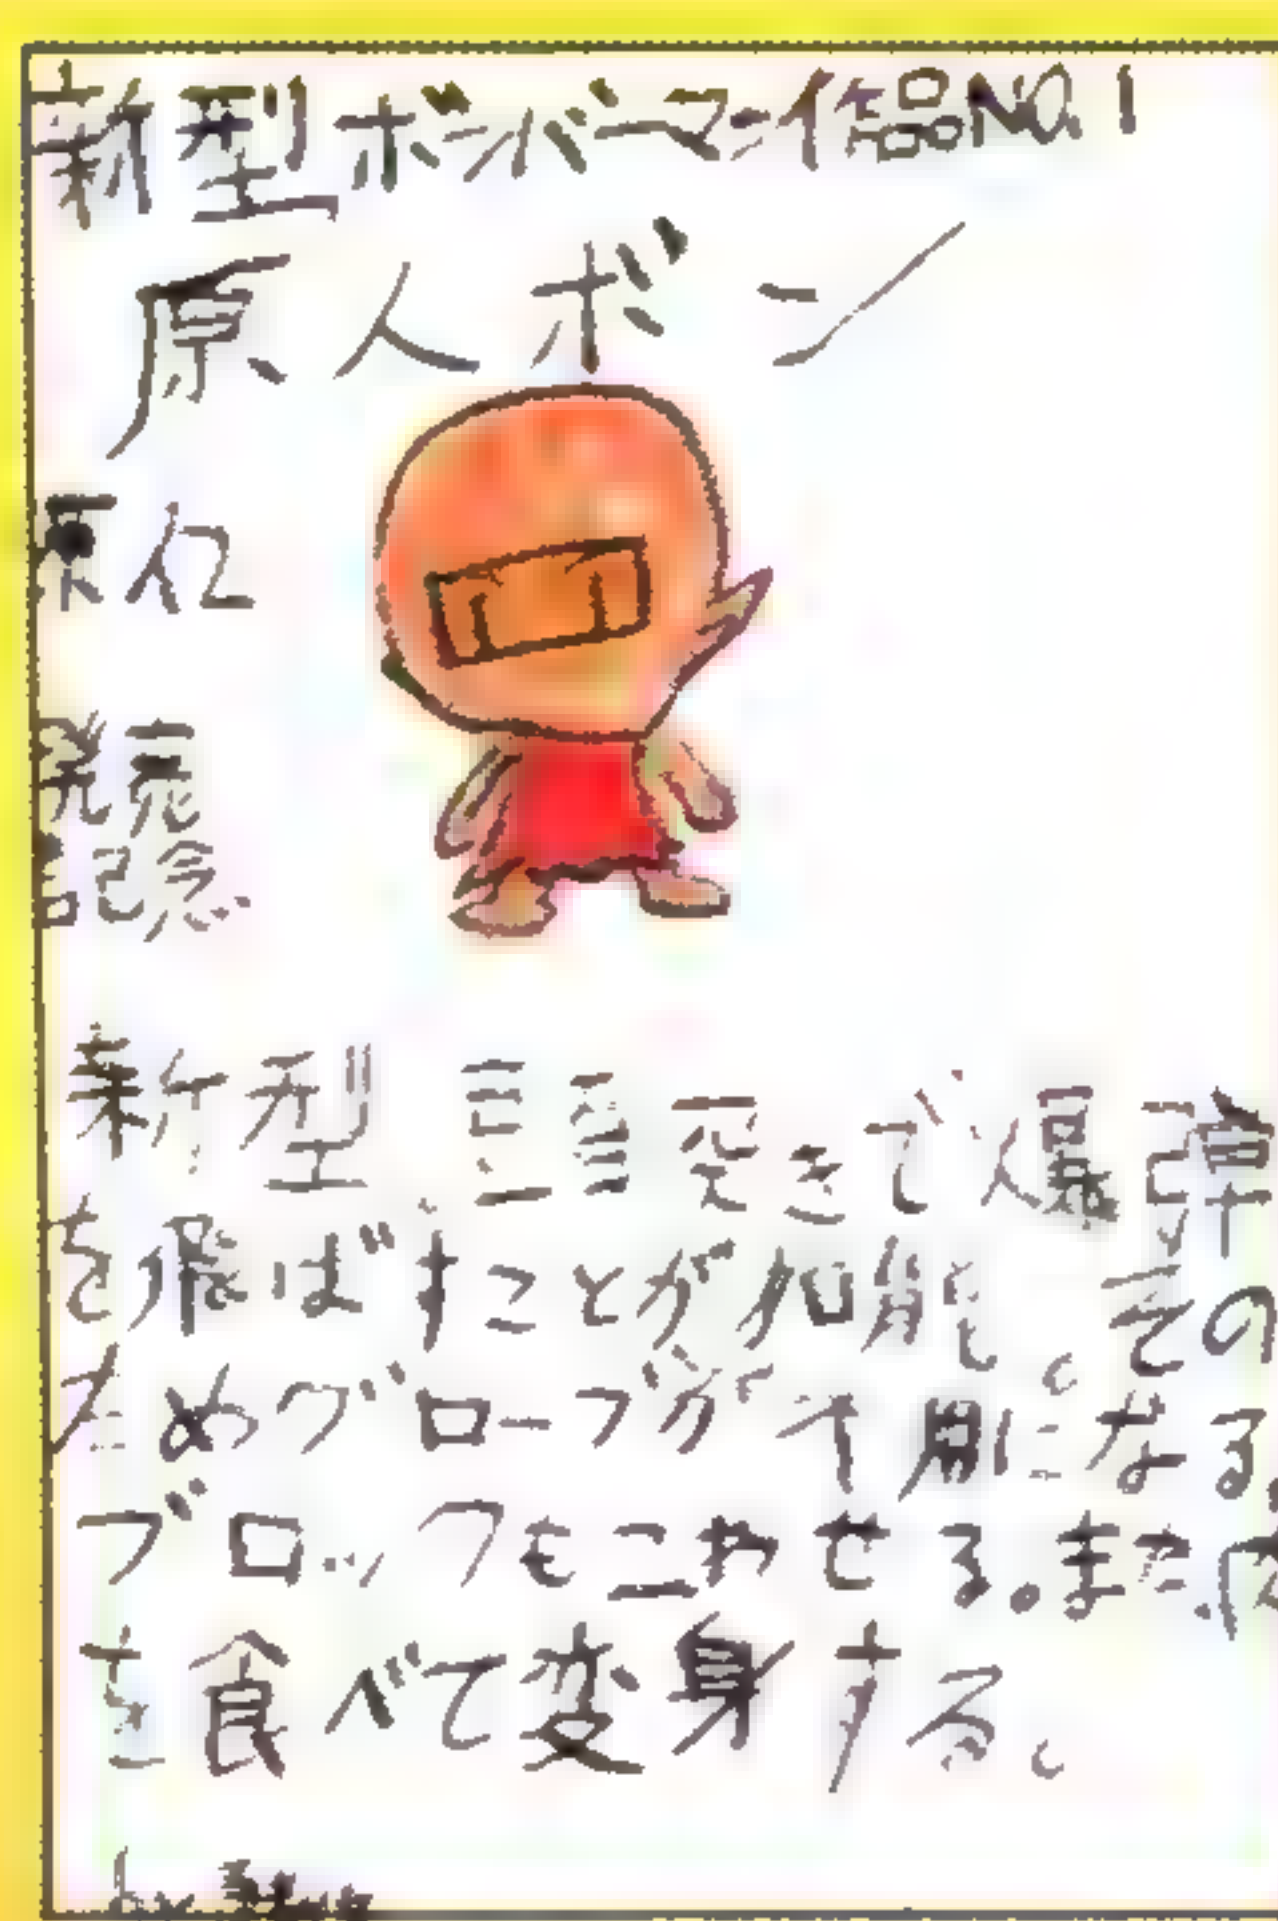 新型ボンバーマン作品NO.1
原人ボン
原人2
発売
記念
新型、頭突きで爆弾
を飛ばすことが可能。その
ためグローブが不用になる。
ブロックもこわせる。また、肉
を食べて変身する。
by